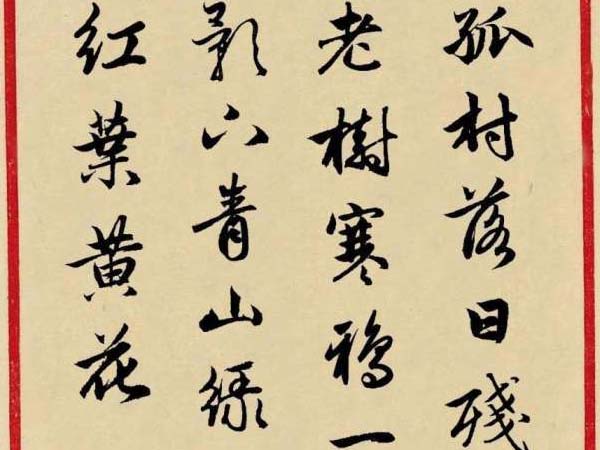 孤村落日殘
老樹寒鴉一
影下青山綠
紅葉黃花